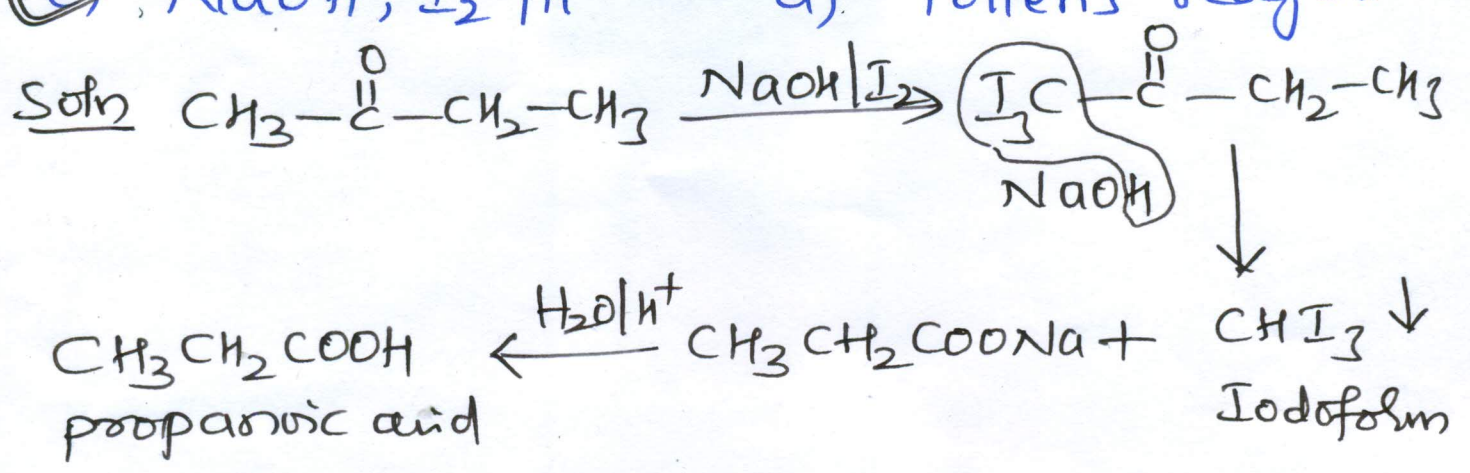 NaOH, I2 /H
d). Tollens
Soln CH3-C-CH2-CH3 NaOH|I2 I3C-C-CH2-CH3
O O
NaOH
CH3CH2COOH H2O|H+ CH3CH2COONa + CHI3↓
propanoic acid Iodoform